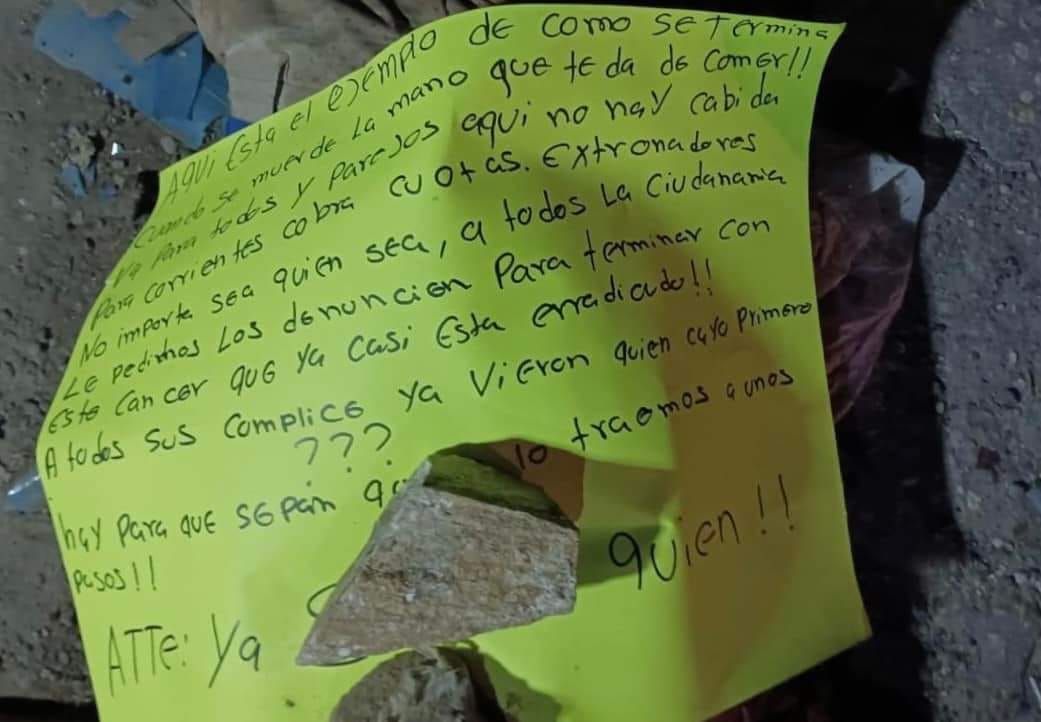 AQUI Esta el ejempdo de como se Termina
Cuando se muerde La mano que te da de Comer!!
Va Para todos y Parejos aqui no hay cabida
Para corrientes cobra cuotas. Extronadores
No importe sea quien sea, a todos La Ciudanania
Le pedimos Los denuncien Para terminar con
Este Cancer que ya casi Esta erradicado!!
A todos Sus Complice ya Vieron quien cayo Primero
???
hay Para que sepan lo traemos a unos
pasos!!
ATTe: Ya quien!!